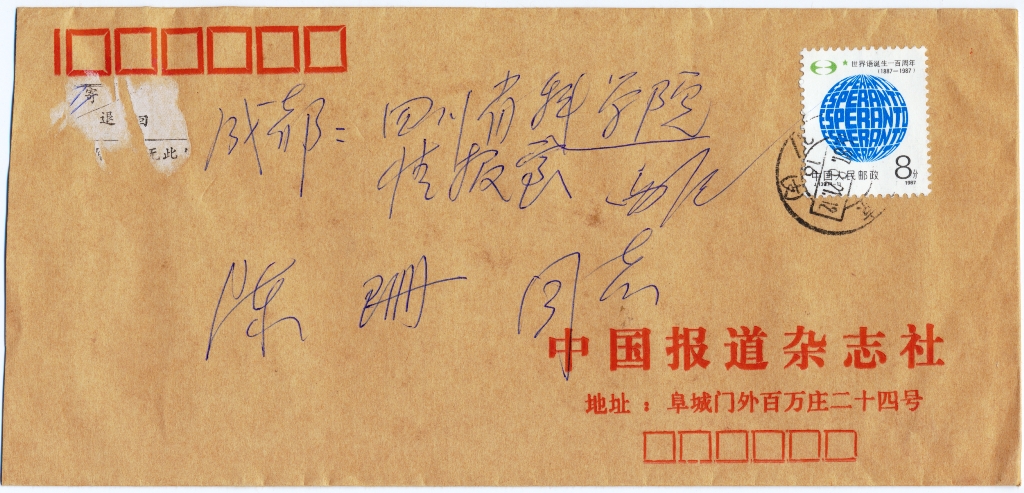 世界语诞生一百周年
(1887—1987)
ESPERANTO
ESPERANTO
ESPERANTO
中国人民邮政
8分
1987
寄
退 回
无此
成都: 四川省科学院
情报室
陈 珊 同志
中国报道杂志社
地址:阜城门外百万庄二十四号